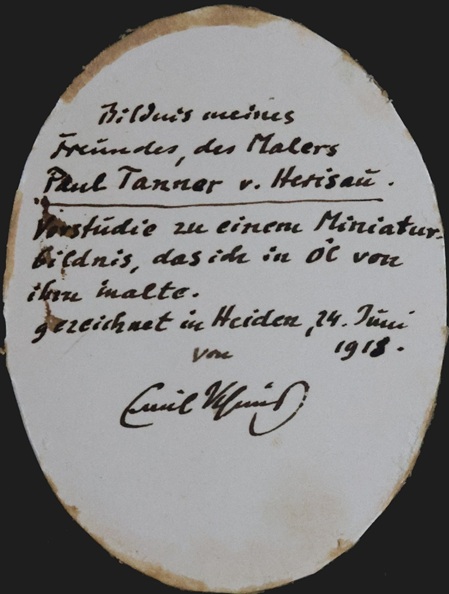 Bildnis meines
Freundes, des Malers
Paul Tanner v. Herisau.
Vorstudie zu einem Miniatur-
bildnis, das ich in Öl von
ihm malte.
gezeichnet in Heiden, 24. Juni
von 1918.
Emil